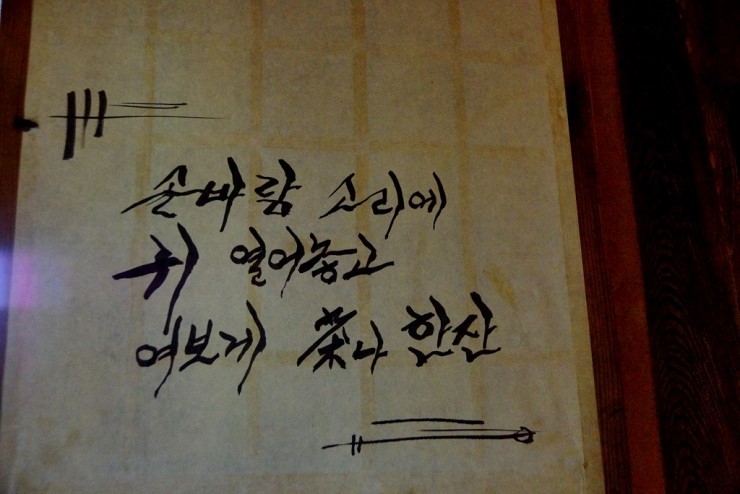 솔바람 소리에
귀 열어놓고
여보게 茶나 한잔